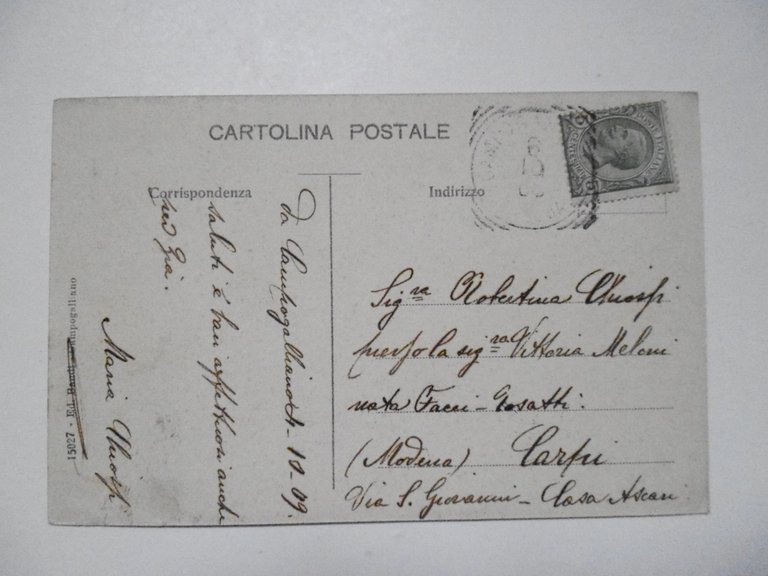 CARTOLINA POSTALE
Corrispondenza
Indirizzo
POSTE ITALIANE
da Campogalliano 4-10-09.
saluti è baci affettuosi anche
Zia.
Maria Chiossi
Sig.ra Robertina Chiossi
presso la sig.ra Vittoria Meloni
nata Facci-
(Modena) Carpi
Via S. Giovanni - Casa Ascari
15027 - Ed. Campogalliano